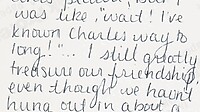 was like, "wait! I've
known Charles way to
long!".. I still greatly
treasure our friendship,
even though we haven't
hung out in about a